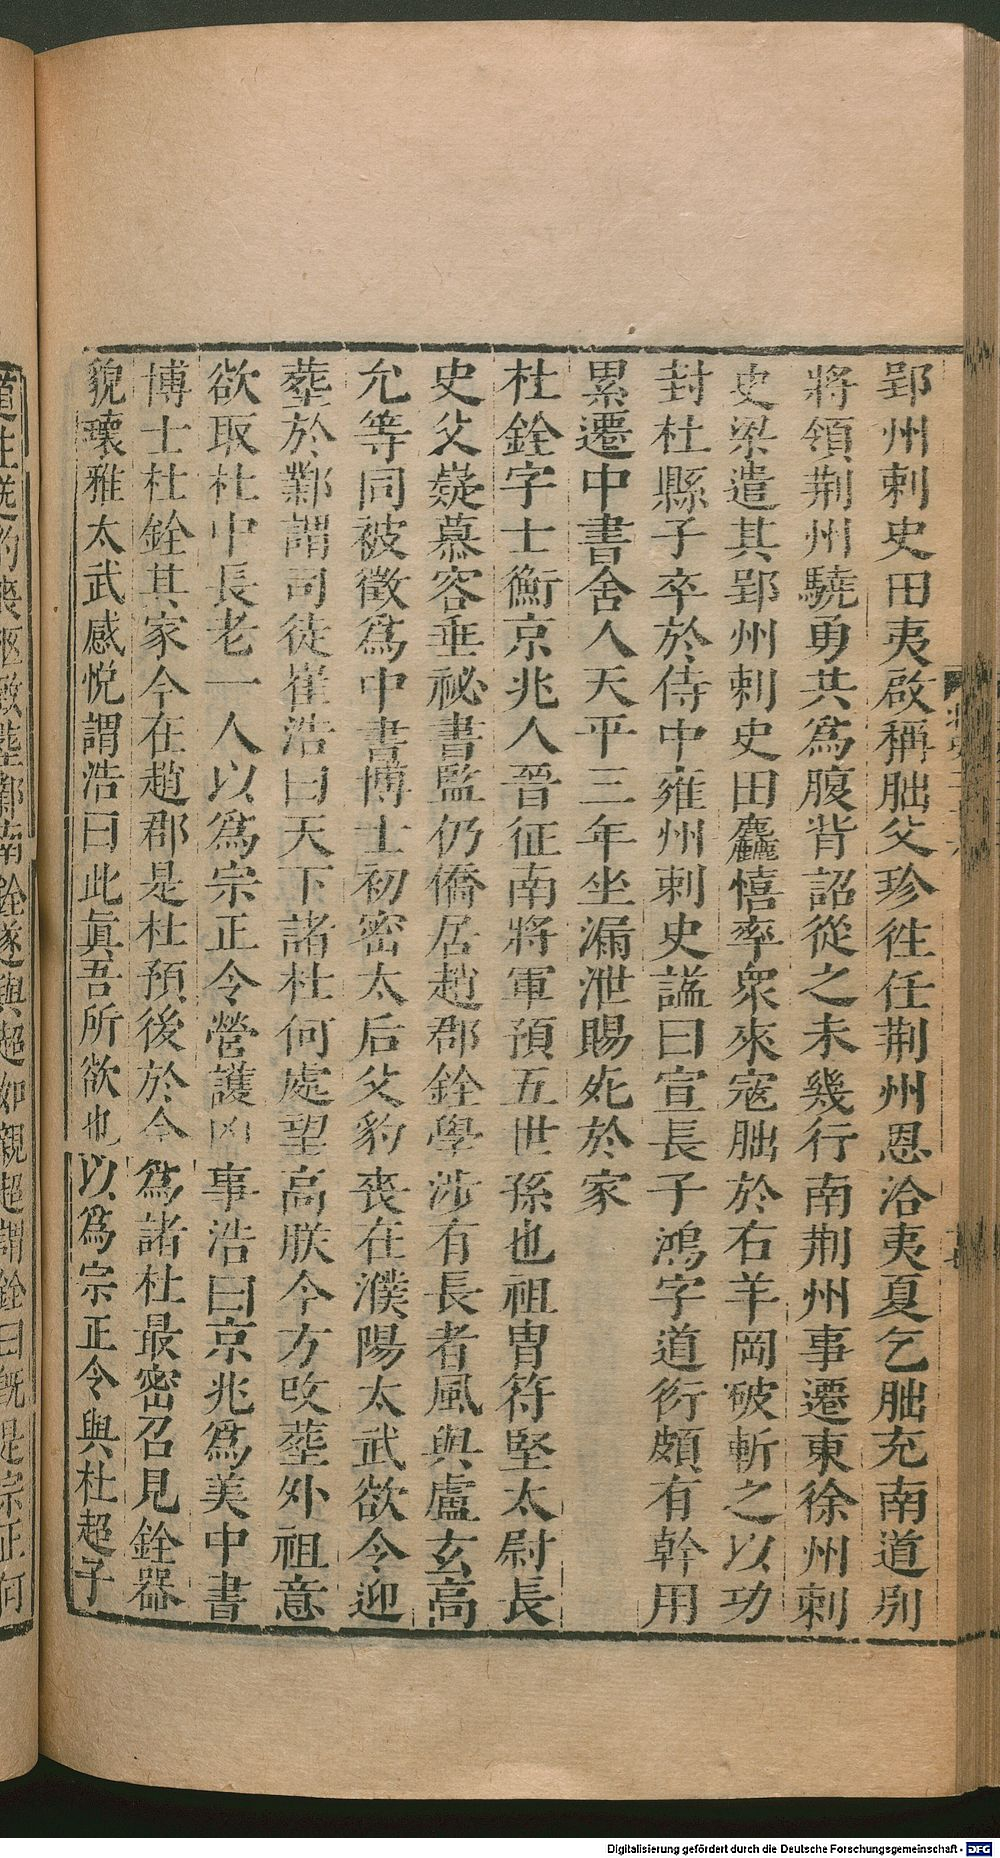 郢州刺史田夷啟稱朏父珍往任荆州恩洽夷夏乞朏充南道别
將領荆州驍勇共爲腹背詔從之未幾行南荆州事遷東徐州刺
史梁遣其郢州刺史田麤憘率衆來寇朏於右羊岡破斬之以功
封杜縣子卒於侍中雍州刺史諡曰宣長子鴻字道衍頗有幹用
累遷中書舍人天平三年坐漏泄賜死於家
杜銓字士衡京兆人晉征南將軍預五世孫也祖胄苻堅太尉長
史父嶷慕容垂祕書監仍僑居趙郡銓學涉有長者風與盧玄高
允等同被徵爲中書博士初密太后父豹喪在濮陽太武欲令迎
葬於鄴謂司徒崔浩曰天下諸杜何處望高朕今方改葬外祖意
欲取杜中長老一人以爲宗正令營護凶事浩曰京兆爲美中書
博士杜銓其家今在趙郡是杜預後於今爲諸杜最密召見銓器
貌瓌雅太武感悅謂浩曰此眞吾所欲也以爲宗正令與杜超子
道生送豹喪柩致葬鄴南銓遂與超如親超謂銓曰既是宗正何
Digitalisierung gefördert durch die Deutsche Forschungsgemeinschaft - DFG